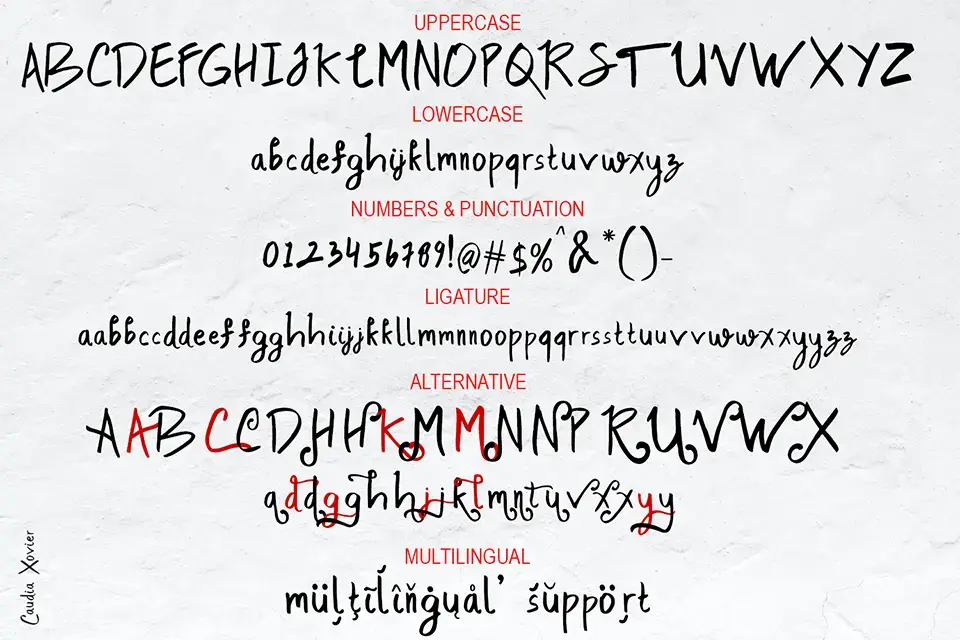 UPPERCASE
ABCDEFGHIJKLMNOPQRSTUVWXYZ
LOWERCASE
abcdefghijklmnopqrstuvwxyz
NUMBERS & PUNCTUATION
0123456789!@#$%^&*()-
LIGATURE
aabbccddeeffgghhiijjkkllmmnnooppqqrrssttuuvvwwxxyyzz
ALTERNATIVE
AABCCDHHKMMNNPRUVWX
qddgghhjjklmntuvxxyy
MULTILINGUAL
müļţĩĺîňġųål’ śŭppöŗt
Caudia Xovier